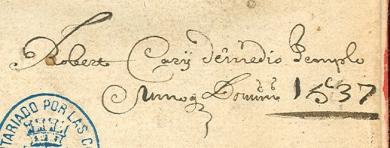 Robert Cary de medio Templo
Annoq Domini 1637
TARIADO POR LAS C